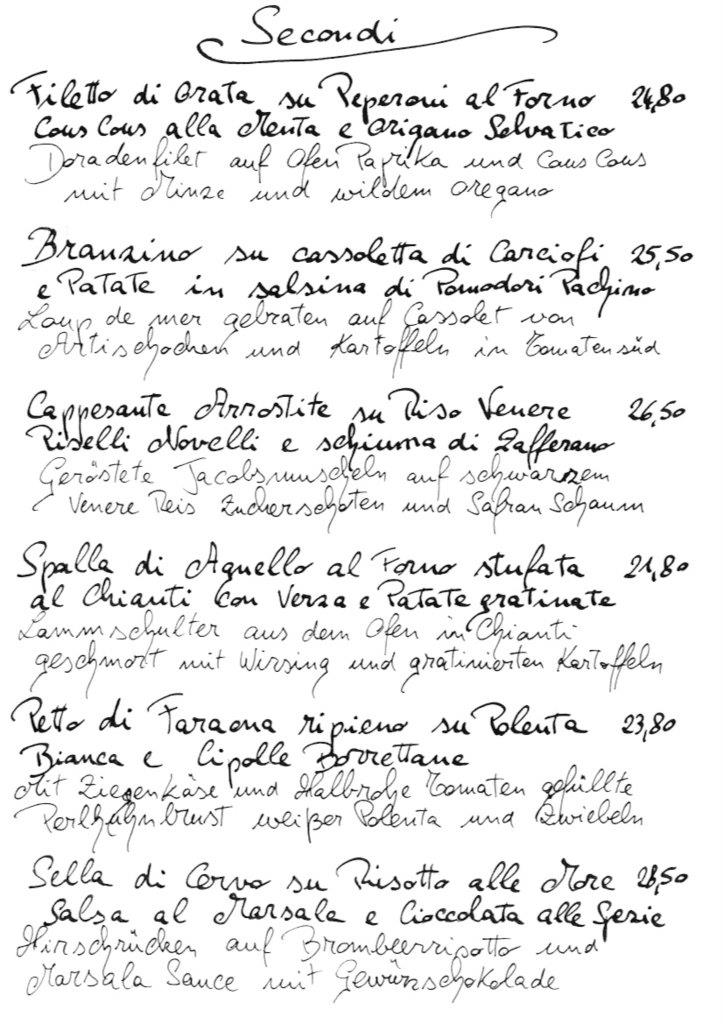 Secondi
Filetto di Orata su Peperoni al Forno 24,80
Cous Cous alla Menta e Origano Selvatico
Doradenfilet auf Ofen Paprika und Cous Cous
mit Minze und wildem Oregano
Branzino su cassoletta di Carciofi 25,50
e Patate in salsina di Pomodori Pachino
Loup de mer gebraten auf Cassolet von
Artischocken und Kartoffeln in Tomatensüd
Cappesante Arrostite su Riso Venere 26,50
Piselli Novelli e schiuma di Zafferano
Geröstete Jacobsmuscheln auf schwarzem
Venere Reis Zuckerschoten und Safran Schaum
Spalla di Agnello al Forno stufata 21,80
al Chianti con Verza e Patate gratinate
Lammschulter aus dem Ofen in Chianti
geschmort mit Wirsing und gratinierten Kartoffeln
Petto di Faraona ripieno su Polenta 23,80
Bianca e Cipolle Borrettane
Mit Ziegenkäse und Halbrohe Tomaten gefüllte
Perlhuhnbrust weißer Polenta und Zwiebeln
Sella di Cervo su Risotto alle More 28,50
Salsa al Marsala e Cioccolata alle Spezie
Hirschrücken auf Brombeerrisotto und
Marsala Sauce mit Gewürzschokolade